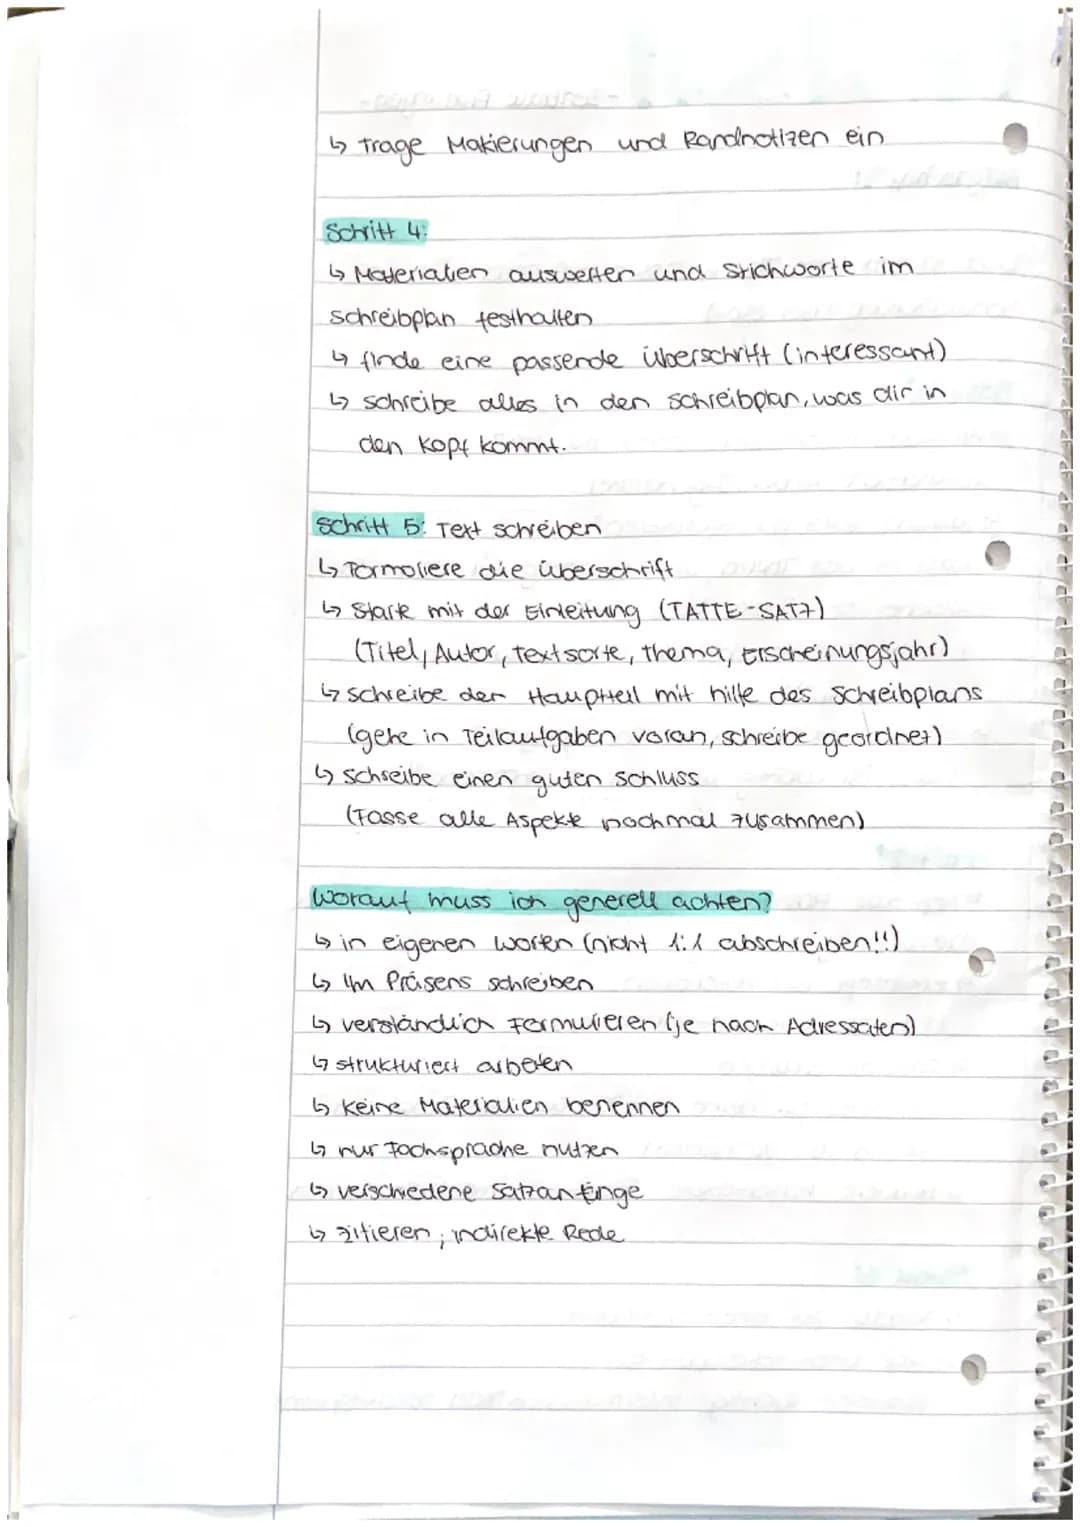 ↳ trage Makierungen und Randnotizen ein
Schritt 4:
↳ Materialien auswerten und Stichworte im
Schreibplan festhalten
↳ finde eine passende Überschrift (interessant)
↳ schreibe alles in den Schreibplan, was dir in
den Kopf kommt.
Schritt 5: Text schreiben
↳ Formoliere die Überschrift
↳ Starte mit der Einleitung (TATTE-SATZ)
(Titel, Autor, Textsorte, Thema, Erscheinungsjahr)
↳ schreibe den Hauptteil mit hilfe des Schreibplans
(gehe in Teilaufgaben voran, schreibe geordnet)
↳ schreibe einen guten Schluss
(Fasse alle Aspekte nochmal zusammen)
Worauf muss ich generell achten?
↳ in eigenen Worten (nicht 1:1 abschreiben!!)
↳ Im Präsens schreiben
↳ verständlich Formulieren (je nach Adressaten)
↳ strukturiert arbeiten
↳ Keine Materialien benennen
↳ nur Fachsprache nutzen
↳ verschiedene Satzanfänge
↳ zitieren, indirekte Rede